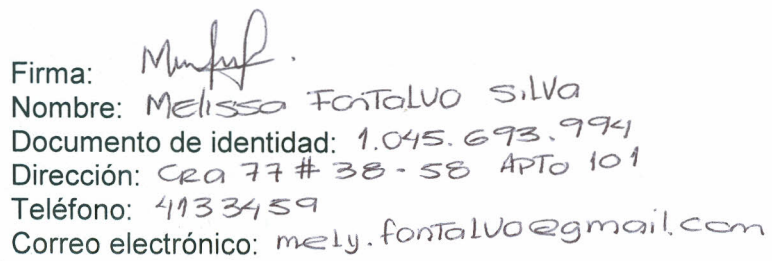 Firma:
Nombre: Melissa Fontalvo Silva
Documento de identidad: 1.045.693.994
Dirección: CRa 77 # 38-58 APTO 101
Teléfono: 4133459
Correo electrónico: mely.fontalvo@gmail.com